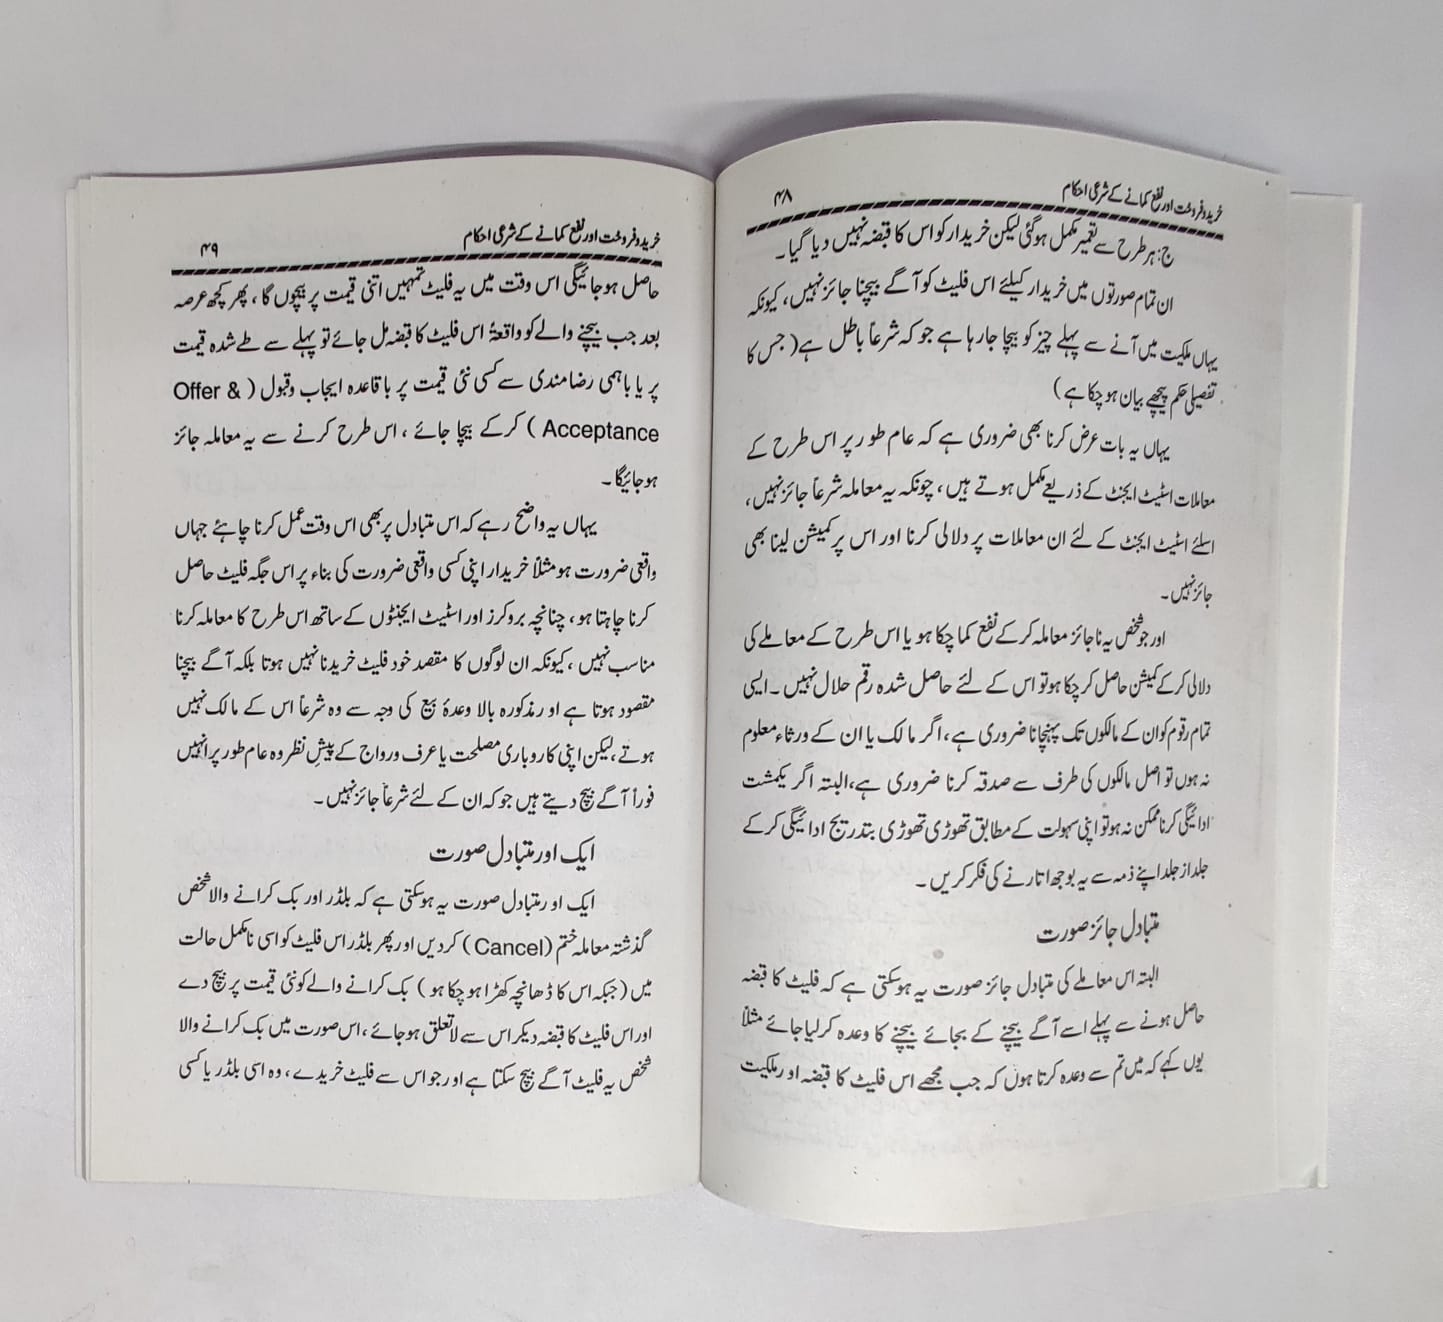 خرید و فروخت اور نفع کمانے کے شرعی احکام ۴۸
ج: ہر طرح سے تعمیر مکمل ہوگئی لیکن خریدار کو اس کا قبضہ نہیں دیا گیا۔
ان تمام صورتوں میں خریدار کیلئے اس فلیٹ کو آگے بیچنا جائز نہیں، کیونکہ
یہاں ملکیت میں آنے سے پہلے چیز کو بیچا جارہا ہے جو کہ شرعاً باطل ہے (جس کا
تفصیلی حکم پیچھے بیان ہو چکا ہے)
یہاں یہ بات عرض کرنا بھی ضروری ہے کہ عام طور پر اس طرح کے
معاملات اسٹیٹ ایجنٹ کے ذریعے مکمل ہوتے ہیں، چونکہ یہ معاملہ شرعاً جائز نہیں،
اسلئے اسٹیٹ ایجنٹ کے لئے ان معاملات پر دلالی کرنا اور اس پر کمیشن لینا بھی
جائز نہیں۔
اور جو شخص یہ ناجائز معاملہ کرکے نفع کما چکا ہو یا اس طرح کے معاملے کی
دلالی کرکے کمیشن حاصل کر چکا ہو تو اس کے لئے حاصل شدہ رقم حلال نہیں۔ ایسی
تمام رقوم کو ان کے مالکوں تک پہنچانا ضروری ہے، اگر مالک یا ان کے ورثاء معلوم
نہ ہوں تو اصل مالکوں کی طرف سے صدقہ کرنا ضروری ہے، البتہ اگر یکمشت
ادائیگی کرنا ممکن نہ ہو تو اپنی سہولت کے مطابق تھوڑی تھوڑی بتدریج ادائیگی کرکے
جلد از جلد اپنے ذمہ سے یہ بوجھ اتارنے کی فکر کریں۔
متبادل جائز صورت
البتہ اس معاملے کی متبادل جائز صورت یہ ہوسکتی ہے کہ فلیٹ کا قبضہ
حاصل ہونے سے پہلے اسے آگے بیچنے کے بجائے بیچنے کا وعدہ کرلیا جائے مثلاً
یوں کہے کہ میں تم سے وعدہ کرتا ہوں کہ جب مجھے اس فلیٹ کا قبضہ اور ملکیت
خرید و فروخت اور نفع کمانے کے شرعی احکام ۴۹
حاصل ہوجائیگی اس وقت میں یہ فلیٹ تمہیں اتنی قیمت پر بیچوں گا، پھر کچھ عرصہ
بعد جب بیچنے والے کو واقعۃً اس فلیٹ کا قبضہ مل جائے تو پہلے سے طے شدہ قیمت
پر یا باہمی رضامندی سے کسی نئی قیمت پر باقاعدہ ایجاب وقبول (Offer &
Acceptance) کرکے بیچا جائے، اس طرح کرنے سے یہ معاملہ جائز
ہوجائیگا۔
یہاں یہ واضح رہے کہ اس متبادل پر بھی اس وقت عمل کرنا چاہئے جہاں
واقعی ضرورت ہو مثلاً خریدار اپنی کسی واقعی ضرورت کی بناء پر اس جگہ فلیٹ حاصل
کرنا چاہتا ہو، چنانچہ بروکرز اور اسٹیٹ ایجنٹوں کے ساتھ اس طرح کا معاملہ کرنا
مناسب نہیں، کیونکہ ان لوگوں کا مقصد خود فلیٹ خریدنا نہیں ہوتا بلکہ آگے بیچنا
مقصود ہوتا ہے اور مذکورہ بالا وعدۂ بیع کی وجہ سے وہ شرعاً اس کے مالک نہیں
ہوتے، لیکن اپنی کاروباری مصلحت یا عرف ورواج کے پیش نظر وہ عام طور پر انہیں
فوراً آگے بیچ دیتے ہیں جو کہ ان کے لئے شرعاً جائز نہیں۔
ایک اور متبادل صورت
ایک اور متبادل صورت یہ ہوسکتی ہے کہ بلڈر اور بک کرانے والا شخص
گذشتہ معاملہ ختم (Cancel) کردیں اور پھر بلڈر اس فلیٹ کو اسی نامکمل حالت
میں (جبکہ اس کا ڈھانچہ کھڑا ہو چکا ہو) بک کرانے والے کو نئی قیمت پر بیچ دے
اور اس فلیٹ کا قبضہ دیکر اس سے لاتعلق ہوجائے، اس صورت میں بک کرانے والا
شخص یہ فلیٹ آگے بیچ سکتا ہے اور جو اس سے فلیٹ خریدے، وہ اسی بلڈر یا کسی